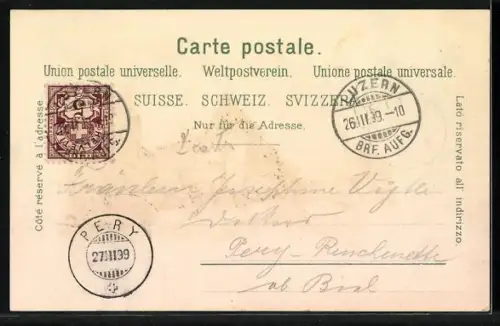 Carte postale.
Union postale universelle. Weltpostverein. Unione postale universale.
SUISSE. SCHWEIZ. SVIZZERA.
Nur für die Adresse.
Côté réservé à l'adresse.
Lato riservato all' indirizzo.
LUZERN
26.III.99.-10
BRF. AUFG.
Fräulein Josephine
Pery-
ob Biel
PERY
27.III.99